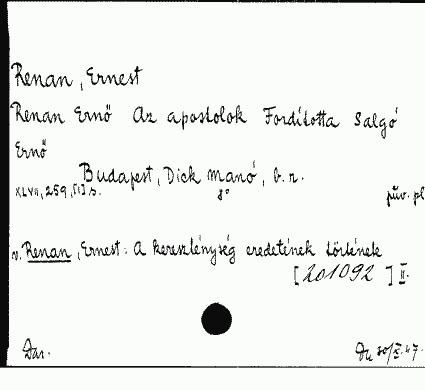 Renan, Ernest
Renan Ernő Az apostolok Fordította Salgó
Ernő
Budapest, Dick Manó, é. n.
XLVII, 259, [1] s. 8° püv. pl
v. Renan, Ernest: A kereszténység eredetének történek
[201092] II.
Dar. 30/X. 47.